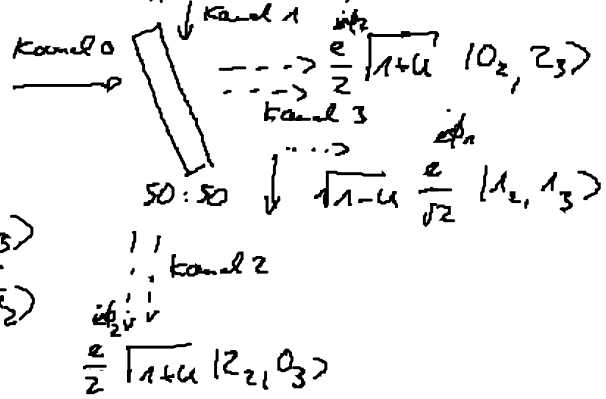 Kanal 1
Kanal 0
e^{iϕ_2}/2 √(1+u) |0_2, 2_3⟩
Kanal 3
√(1-u) e^{iϕ_1}/√2 |1_2, 1_3⟩
50:50
3⟩
Kanal 2
2⟩
e^{iϕ_2}/2 √(1+u) |2_2, 0_3⟩